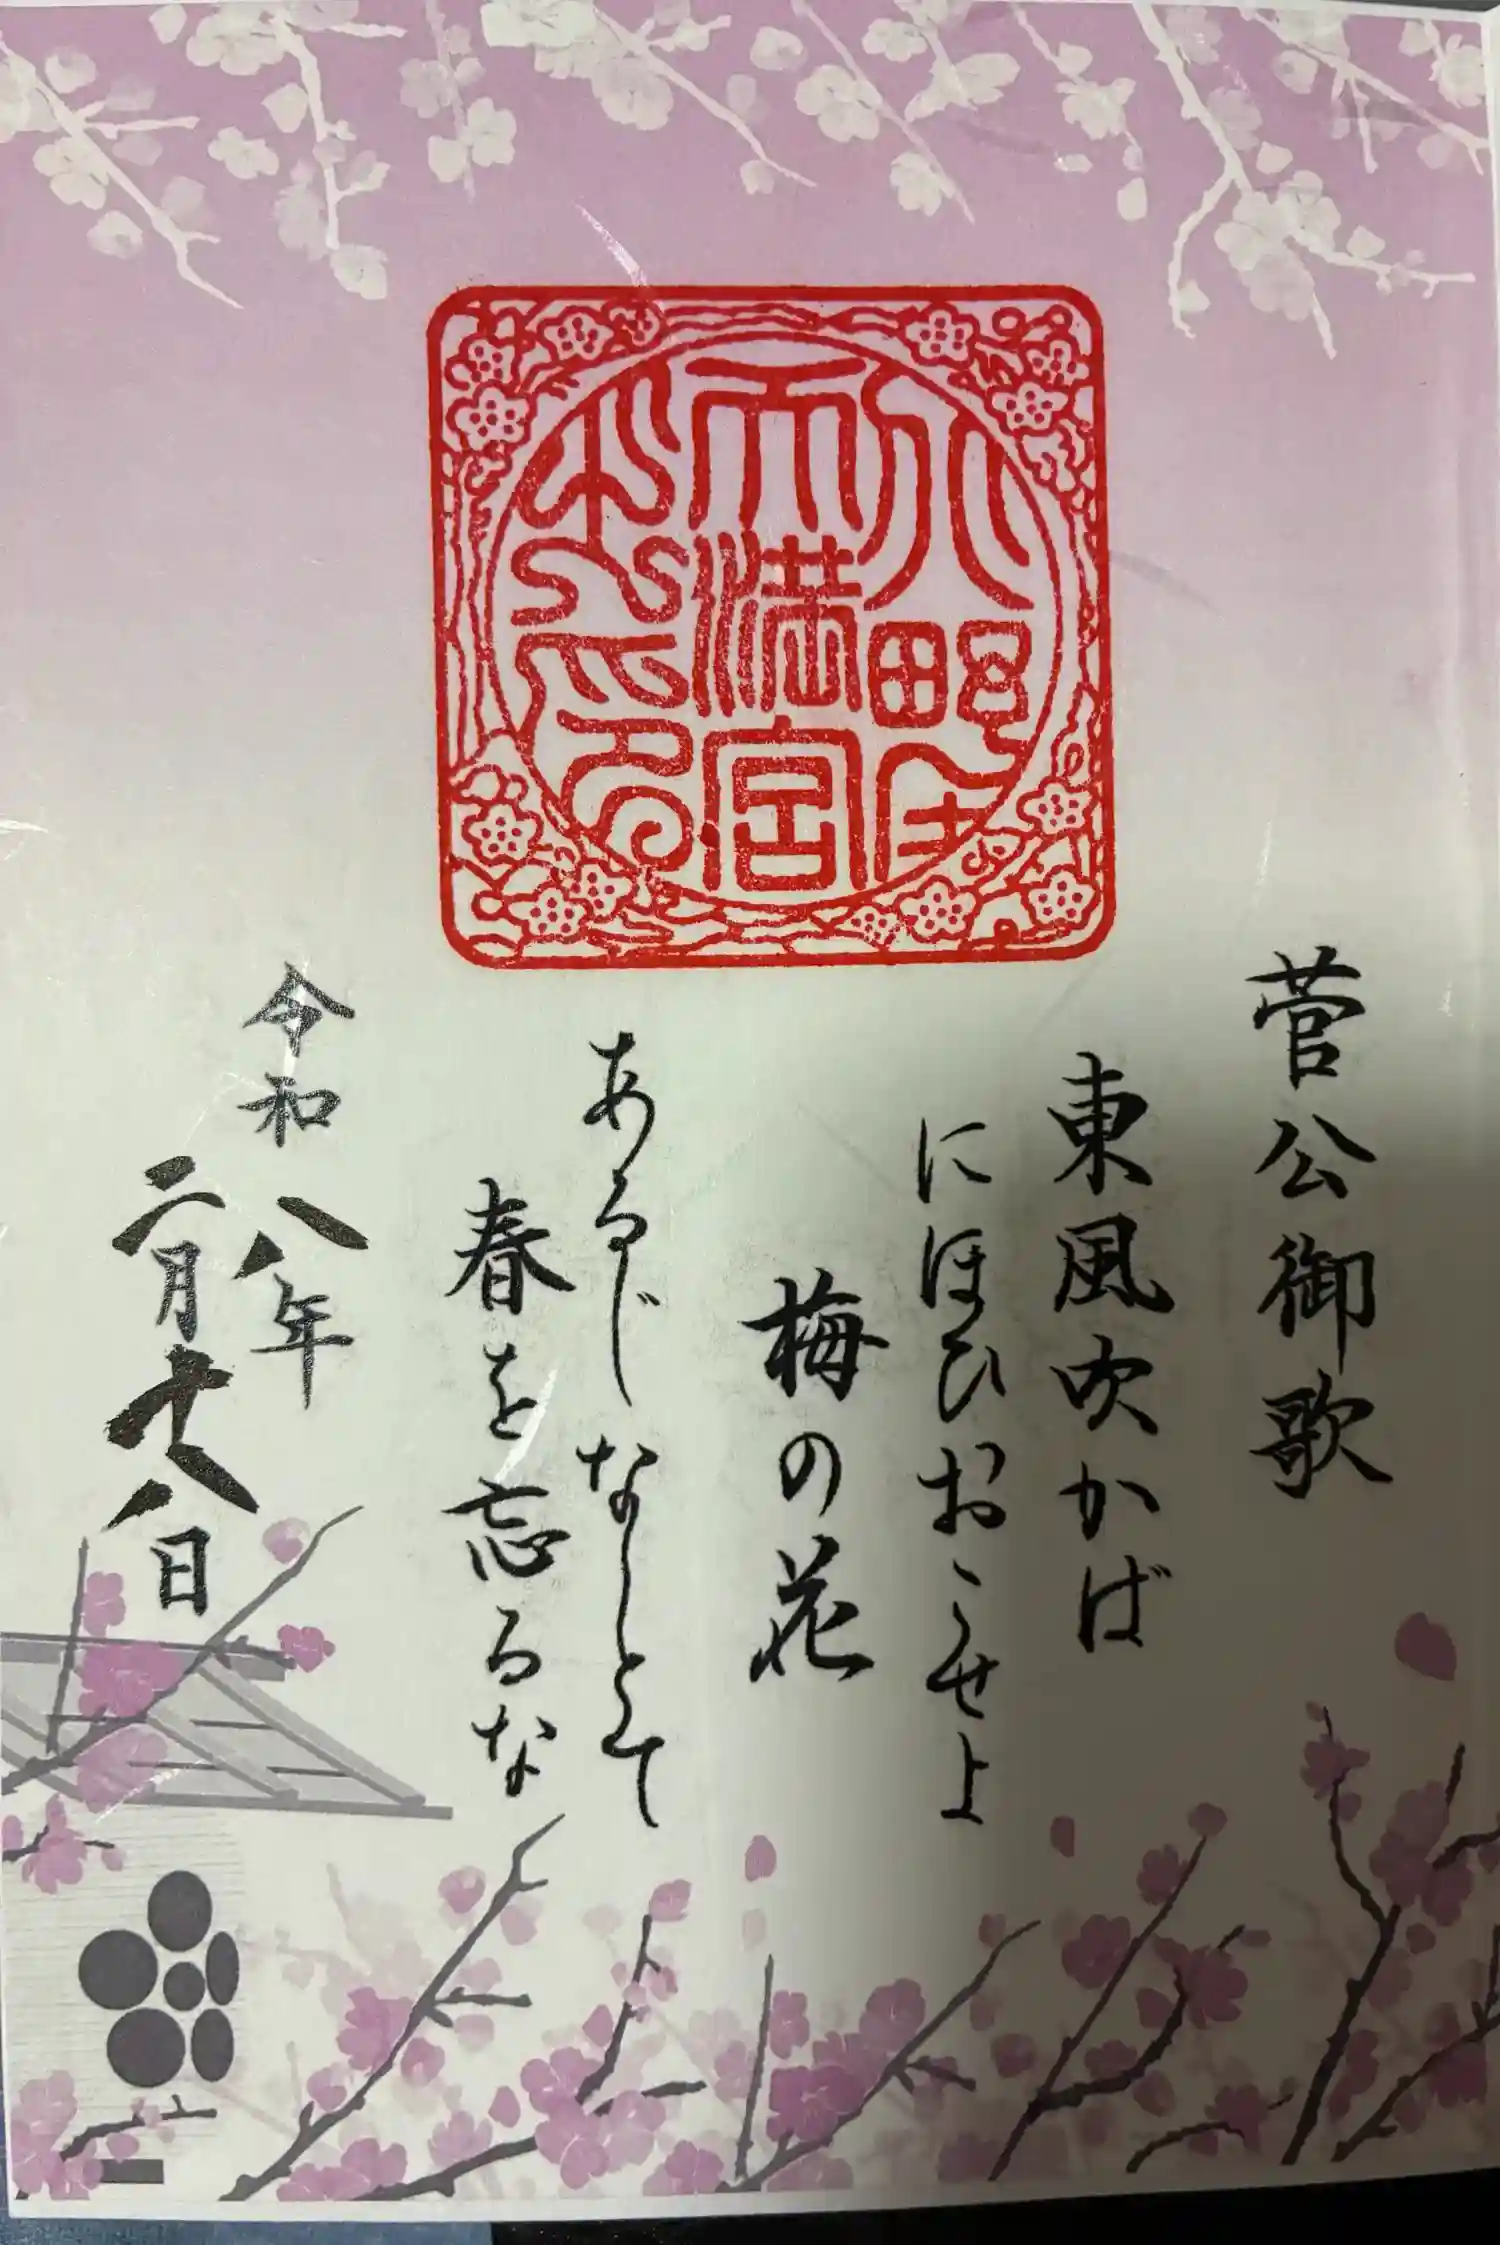 天満宮
菅公御歌
東風吹かば
にほひおこせよ
梅の花
あるじなしとて
春を忘るな
令和八年
二月十八日